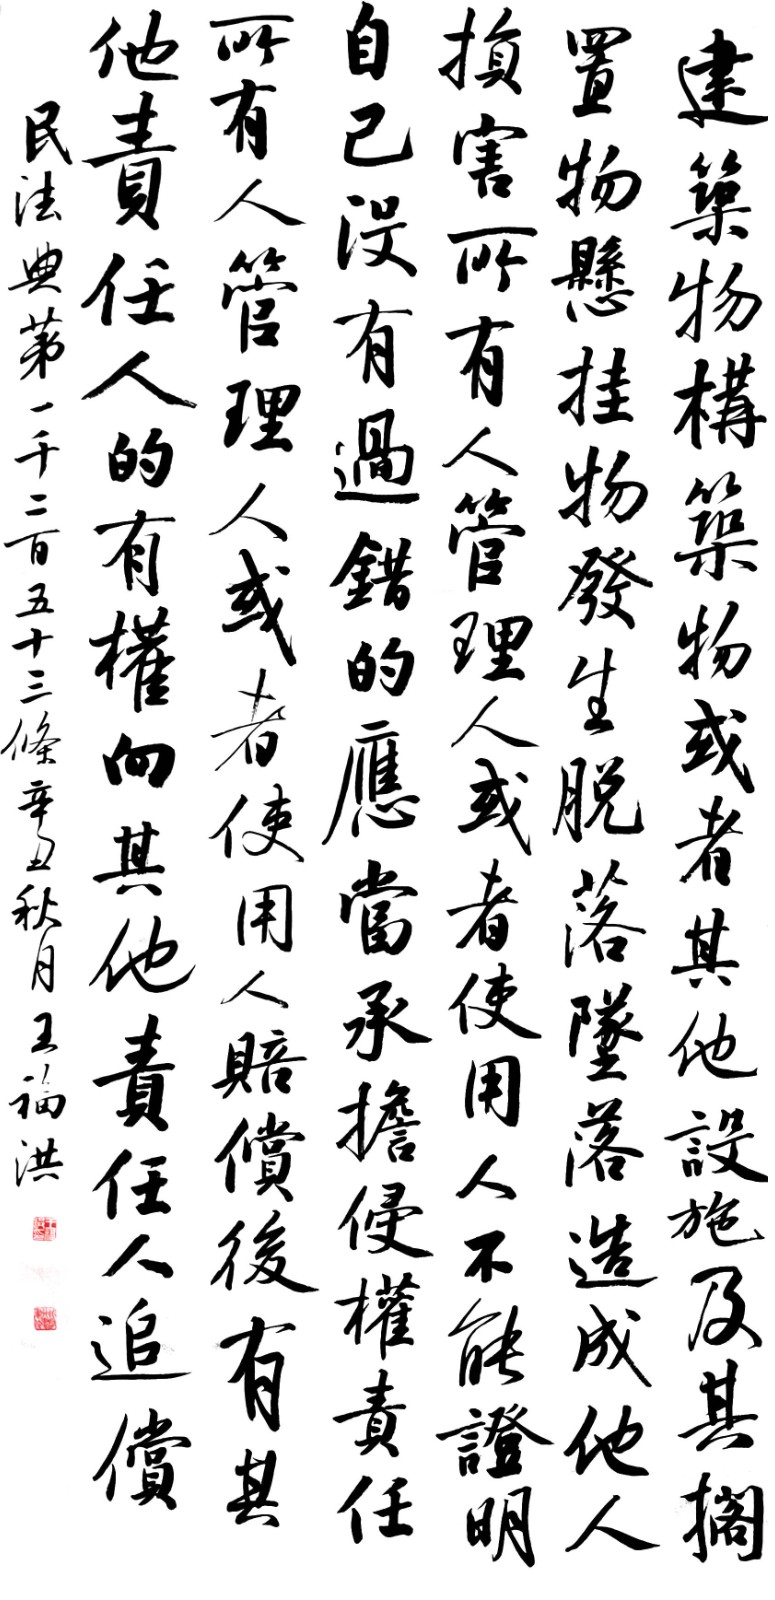 建築物構築物或者其他設施及其擱
置物懸挂物發生脱落墜落造成他人
損害所有人管理人或者使用人不能證明
自己没有過錯的應當承擔侵權責任
所有人管理人或者使用人賠償後有其
他責任人的有權向其他責任人追償
民法典第一千二百五十三條辛丑秋月王福洪